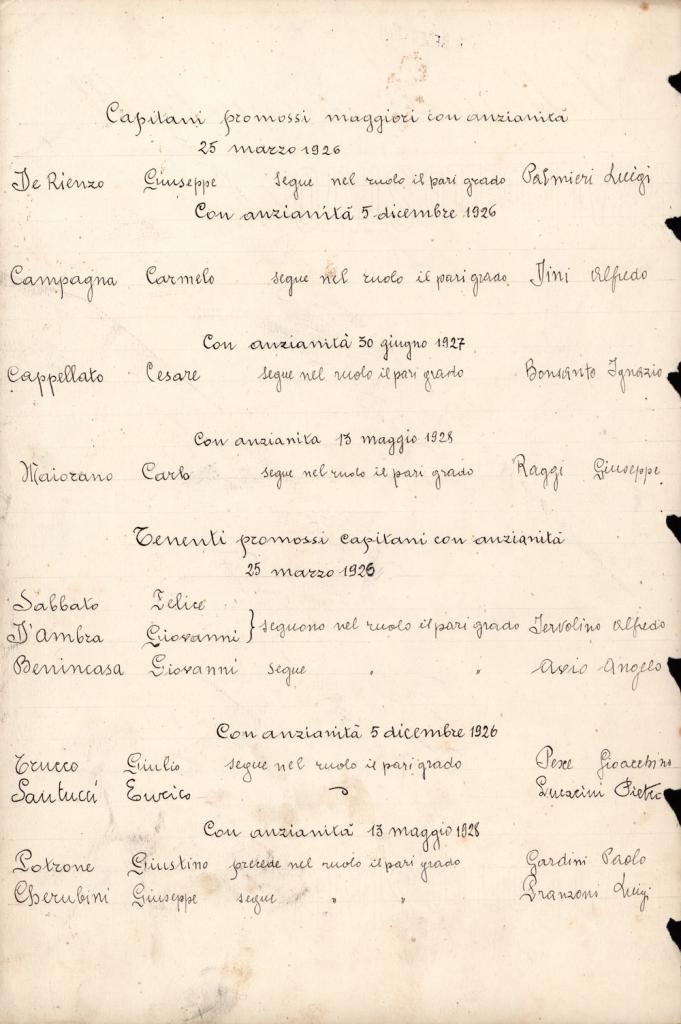 Capitani promossi maggiori con anzianità
25 marzo 1926
De Rienzo Giuseppe segue nel ruolo il pari grado Palmieri Luigi
Con anzianità 5 dicembre 1926
Campagna Carmelo segue nel ruolo il pari grado Jini Alfredo
Con anzianità 30 giugno 1927
Cappellato Cesare segue nel ruolo il pari grado Bonsanto Ignazio
Con anzianita 13 maggio 1928
Maiorano Carlo segue nel ruolo il pari grado Raggi Giuseppe
Tenenti promossi capitani con anzianità
25 marzo 1926
Sabbato Felice
D'Ambra Giovanni } seguono nel ruolo il pari grado Jervolino Alfredo
Benincasa Giovanni segue " " Avio Angelo
Con anzianità 5 dicembre 1926
Trucco Giulio segue nel ruolo il pari grado Pesce Gioacchino
Santucci Enrico " Pietro
Con anzianità 13 maggio 1928
Potrone Giustino precede nel ruolo il pari grado Gardini Paolo
Cherubini Giuseppe segue " " Pranzoni Luigi